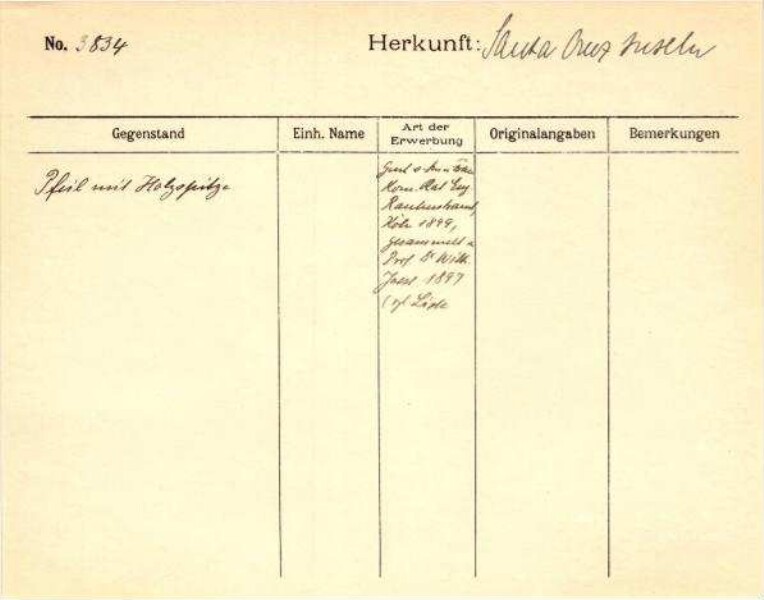 No. 3834
Herkunft: Santa Cruz Inseln
Gegenstand
Einh. Name
Art der
Erwerbung
Originalangaben
Bemerkungen
Pfeil mit Holzspitze
Kom. Rat Eug
Rautenstrauch,
Köln 1899,
gesammelt v.
Prof. Dr Wilh.
Joest 1897
Liste